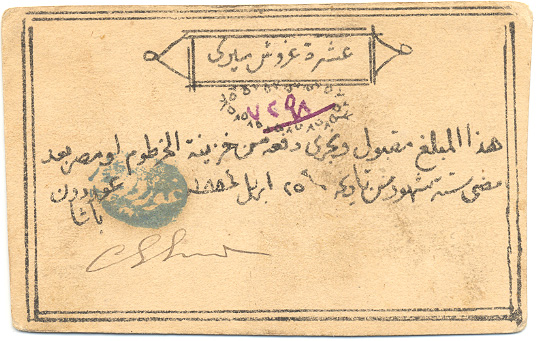 عشرة غروش ميرى
٧٢٩٨
هذا المبلغ مقبول ويجرى دفعه من خزينة الخرطوم او مصر بعد
مضى ستة شهور من تاريخه ٢٥ ابريل ١٨٨٤ غوردون
باشا